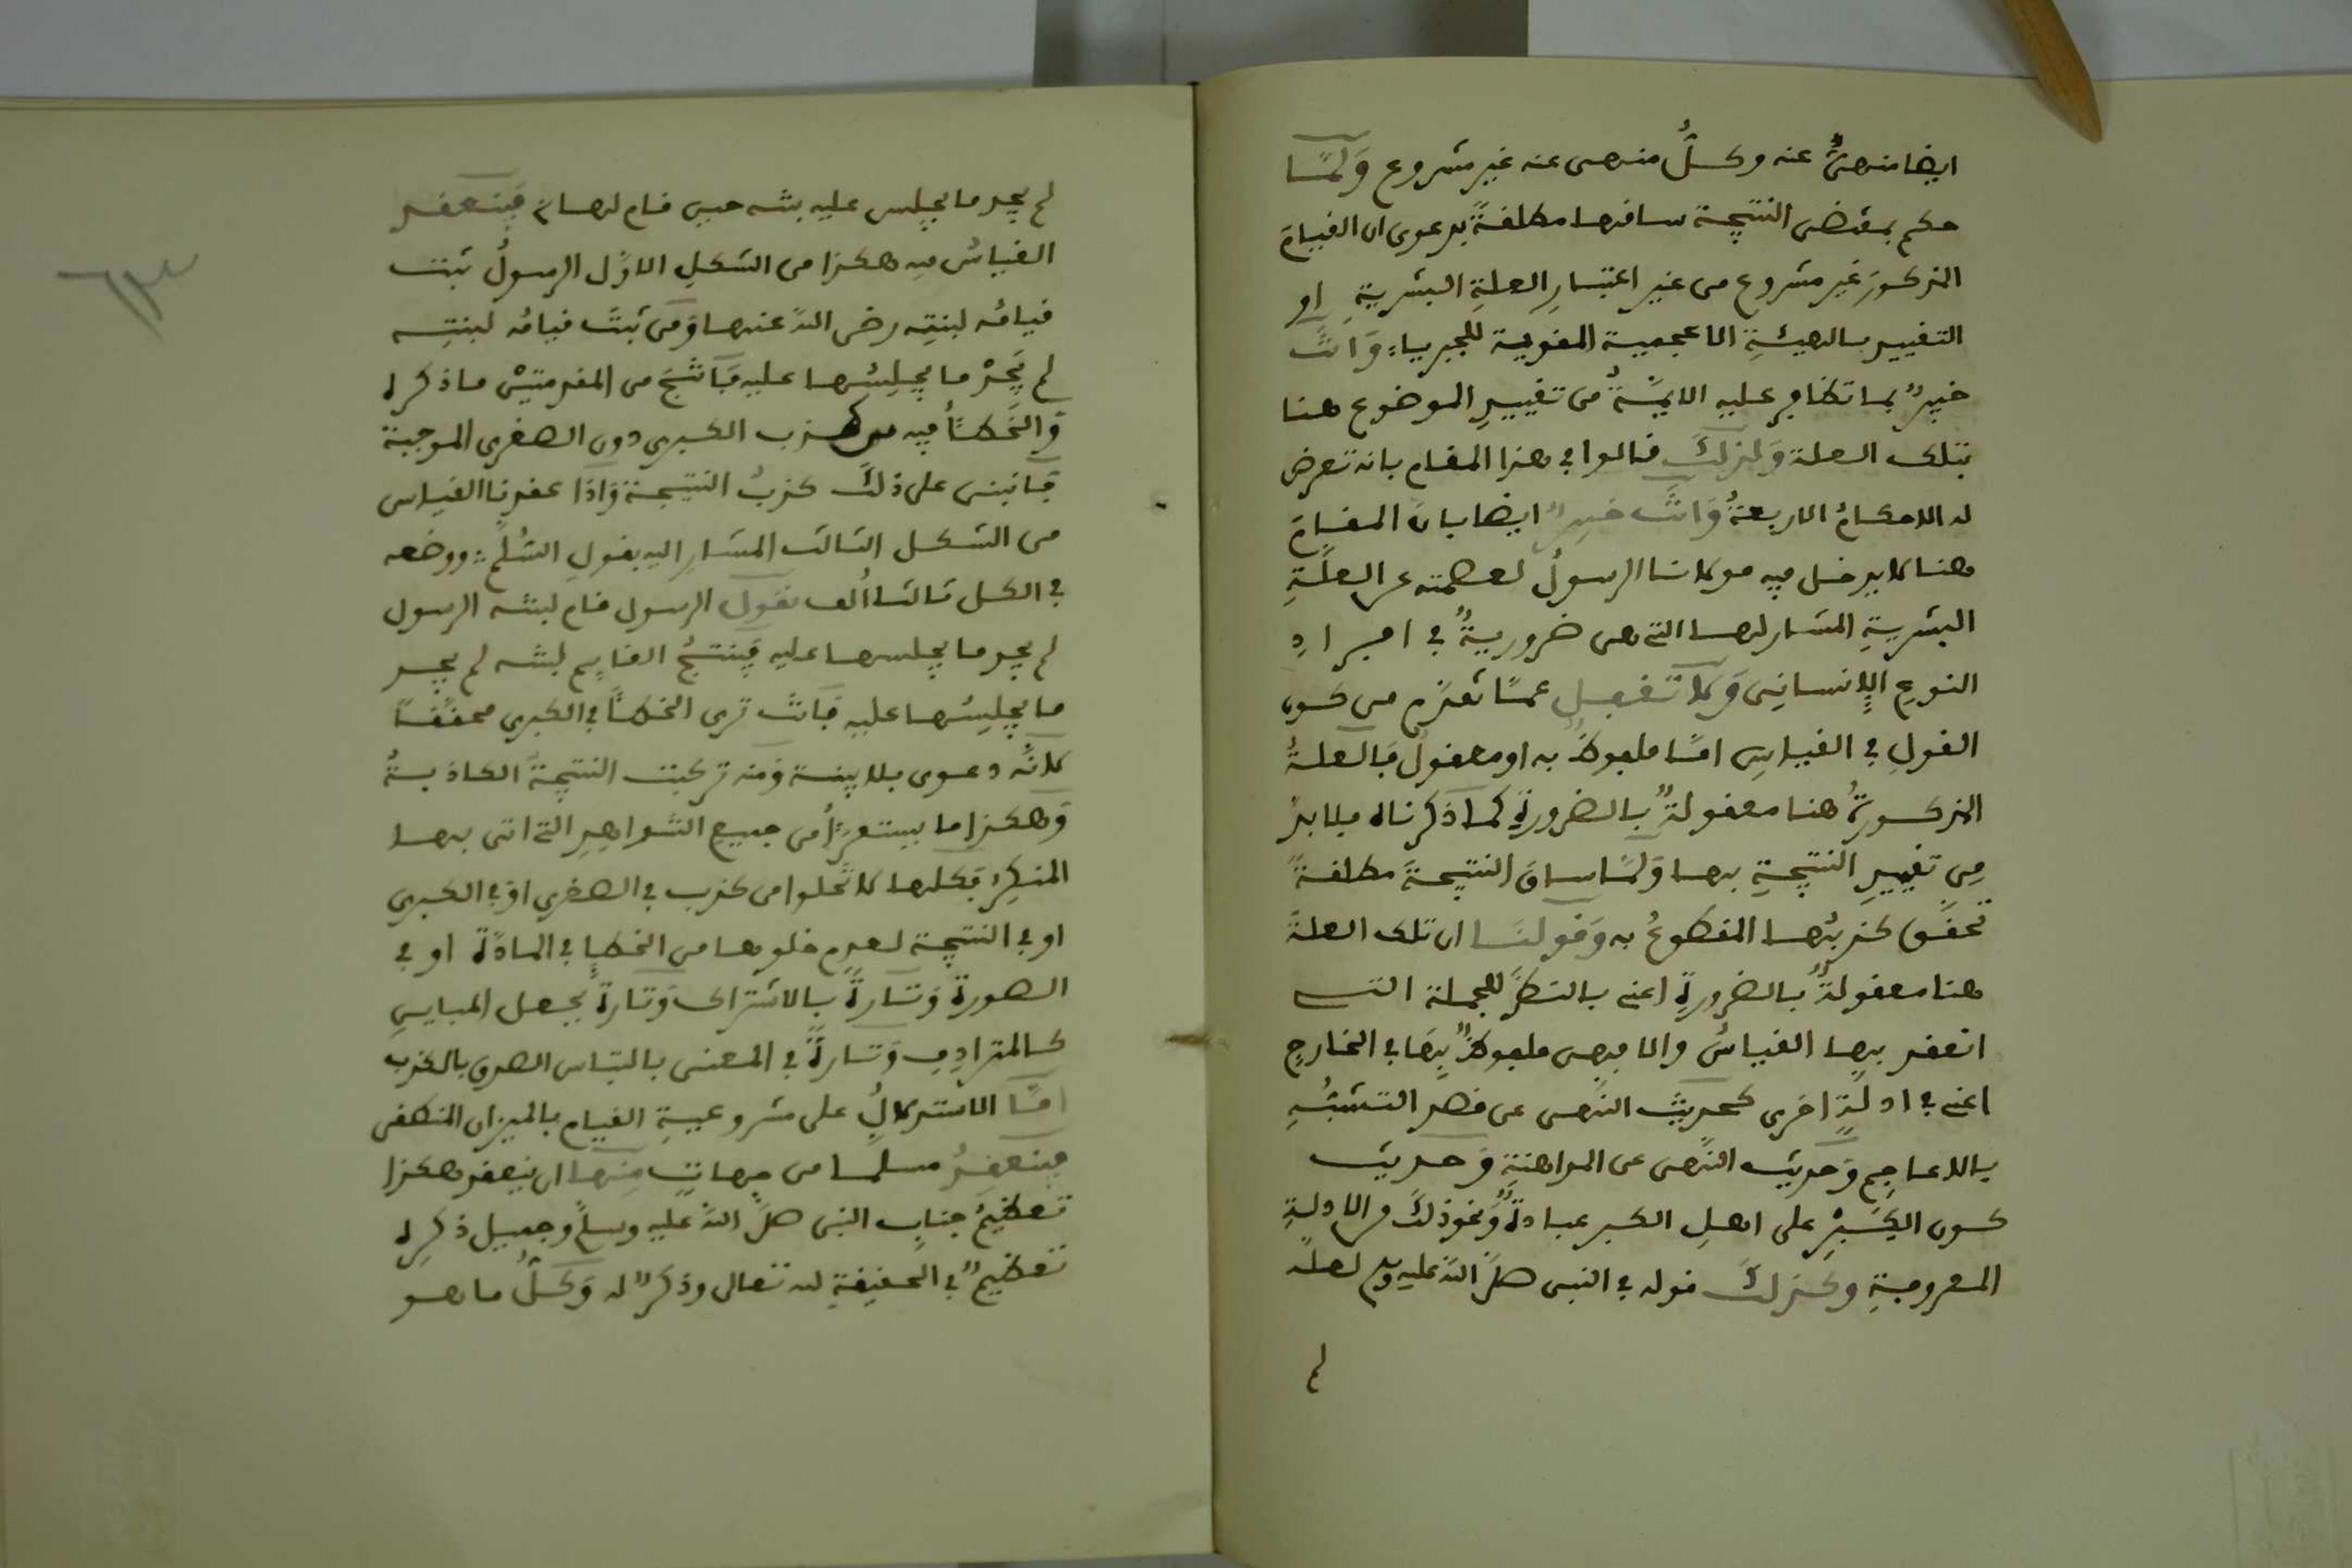 ايضا منهىٌّ عنه وكلُّ منهى عنه غير مشروع وَلَمَّا
حكم بمقتضى النتيجة ساقها مطلقةً بدعوى ان القيامَ
المذكورَ غير مشروع من غير اعتبارِ العلةِ البشريةِ او
التقييد بالهيئةِ الاعجمية المقوية للجبريا: وَانْتَ
خبيرٌ بما تظافر عليه الايمَّةُ من تقييدِ الموضوع هنا
بتلك العلة وَلذلكَ قالوا في هذا المقام بانه تعرض
له الاحكامُ الاربعةُ وَانْتَ خبيرٌ ايضا بان المقامَ
هنا لا يدخل فيه مولانا الرسولُ لعصمته عن العلَّةِ
البشريةِ المشار لها التى هى ضروريةٌ في افرادِ
النوعِ الإنسانِى وَلا تغفل عمَّا تقدَّم من كون
القولِ في القياسِ امَّا ملفوظٌ به او معقولٌ فالعلةُ
المذكورةُ هنا معقولةٌ بالضرورةِ كما ذكرناه فلا بدَّ
مِن تقييدِ النتيجةِ بها وَلَمَّا ساقَ النتيجةَ مطلقةً
تحقَّق كذبُها المقطوعُ به وَقولنَا ان تلك العلةَ
هنا معقولةٌ بالضرورةِ اعنى بالنظر للجملة التى
انعقد بها القياسُ والا فهى ملفوظٌ بِهَا في الخارجِ
اعنى في ادلةٍ اخرى كحديث النَّهى عن قصد التشبُّهِ
بالاعاجِم وَحديث النَّهى عن المداهنةِ وَحديث
كون الكِبْرِ على اهلِ الكبر عبادةٌ وَنحوِ ذلكَ من الادلةِ
المعروفةِ وكذلكَ قوله في النبى صلَّى اللهُ عليه وسلم لعلَّه
لم
لم يجد ما يجلس عليه بنته حين قام لها: فينعقد
القياسُ فيه هكذا من الشكلِ الاوَّل الرسولُ ثبت
قيامُه لبنتِه رضى اللهُ عنها وَمن ثبتَ قيامُه لبنتِه
لم يَجدْ ما يجلِسُها عليه فَانْتَجَ من المقدمتيْن ما ذكره
وَالخَطأُ فيه من كذب الكبرى دون الصغرى الموجبة
فَانبنى على ذلكَ كذبُ النتيجة وَاذَا عقدنا القياس
من الشكل الثالث المشارِ اليه بقولِ السُّلَّم: ووضعه
في الكل ثالثا اُلف نقول الرسول قام لبنته الرسول
لم يجد ما يجلسها عليه فَينتجُ القايم لبنته لم يجد
ما يجلِسُها عليه فَانْتَ ترى الخطأَ في الكبرى محقَّقًا
لانَّه دعوى بلا بينة وَمنه تركبت النتيجةُ الكاذبةُ
وَهكذا ما يستقرأُ من جميع الشواهِدِ التى اتى بها
المنكِرُ فكلها لا تَخلوا من كذب في الصغرى اوْ في الكبرى
او في النتيجة لعدمِ خلوها من الخطإِ في المادَّة او في
الصورة وَتارةً بالاشتراك وَتارةً بجعل المباينِ
كالمترادِفِ وَتارةً في المعنى بالتباس الصدق بالكذب
امَّا الاستدلالُ على مشروعيةِ القيام بالميزان المنطقى
فينعقدُ مسلما من جهاتٍ مِنها ان ينعقد هكذا
تعظيمُ جنابِ النبى صلَّى اللهُ عليه وسلَّم وجميل ذكرِه
تعظيمٌ في الحقيقةِ لله تعالى وذكرٌ له وَكلُّ ما هو